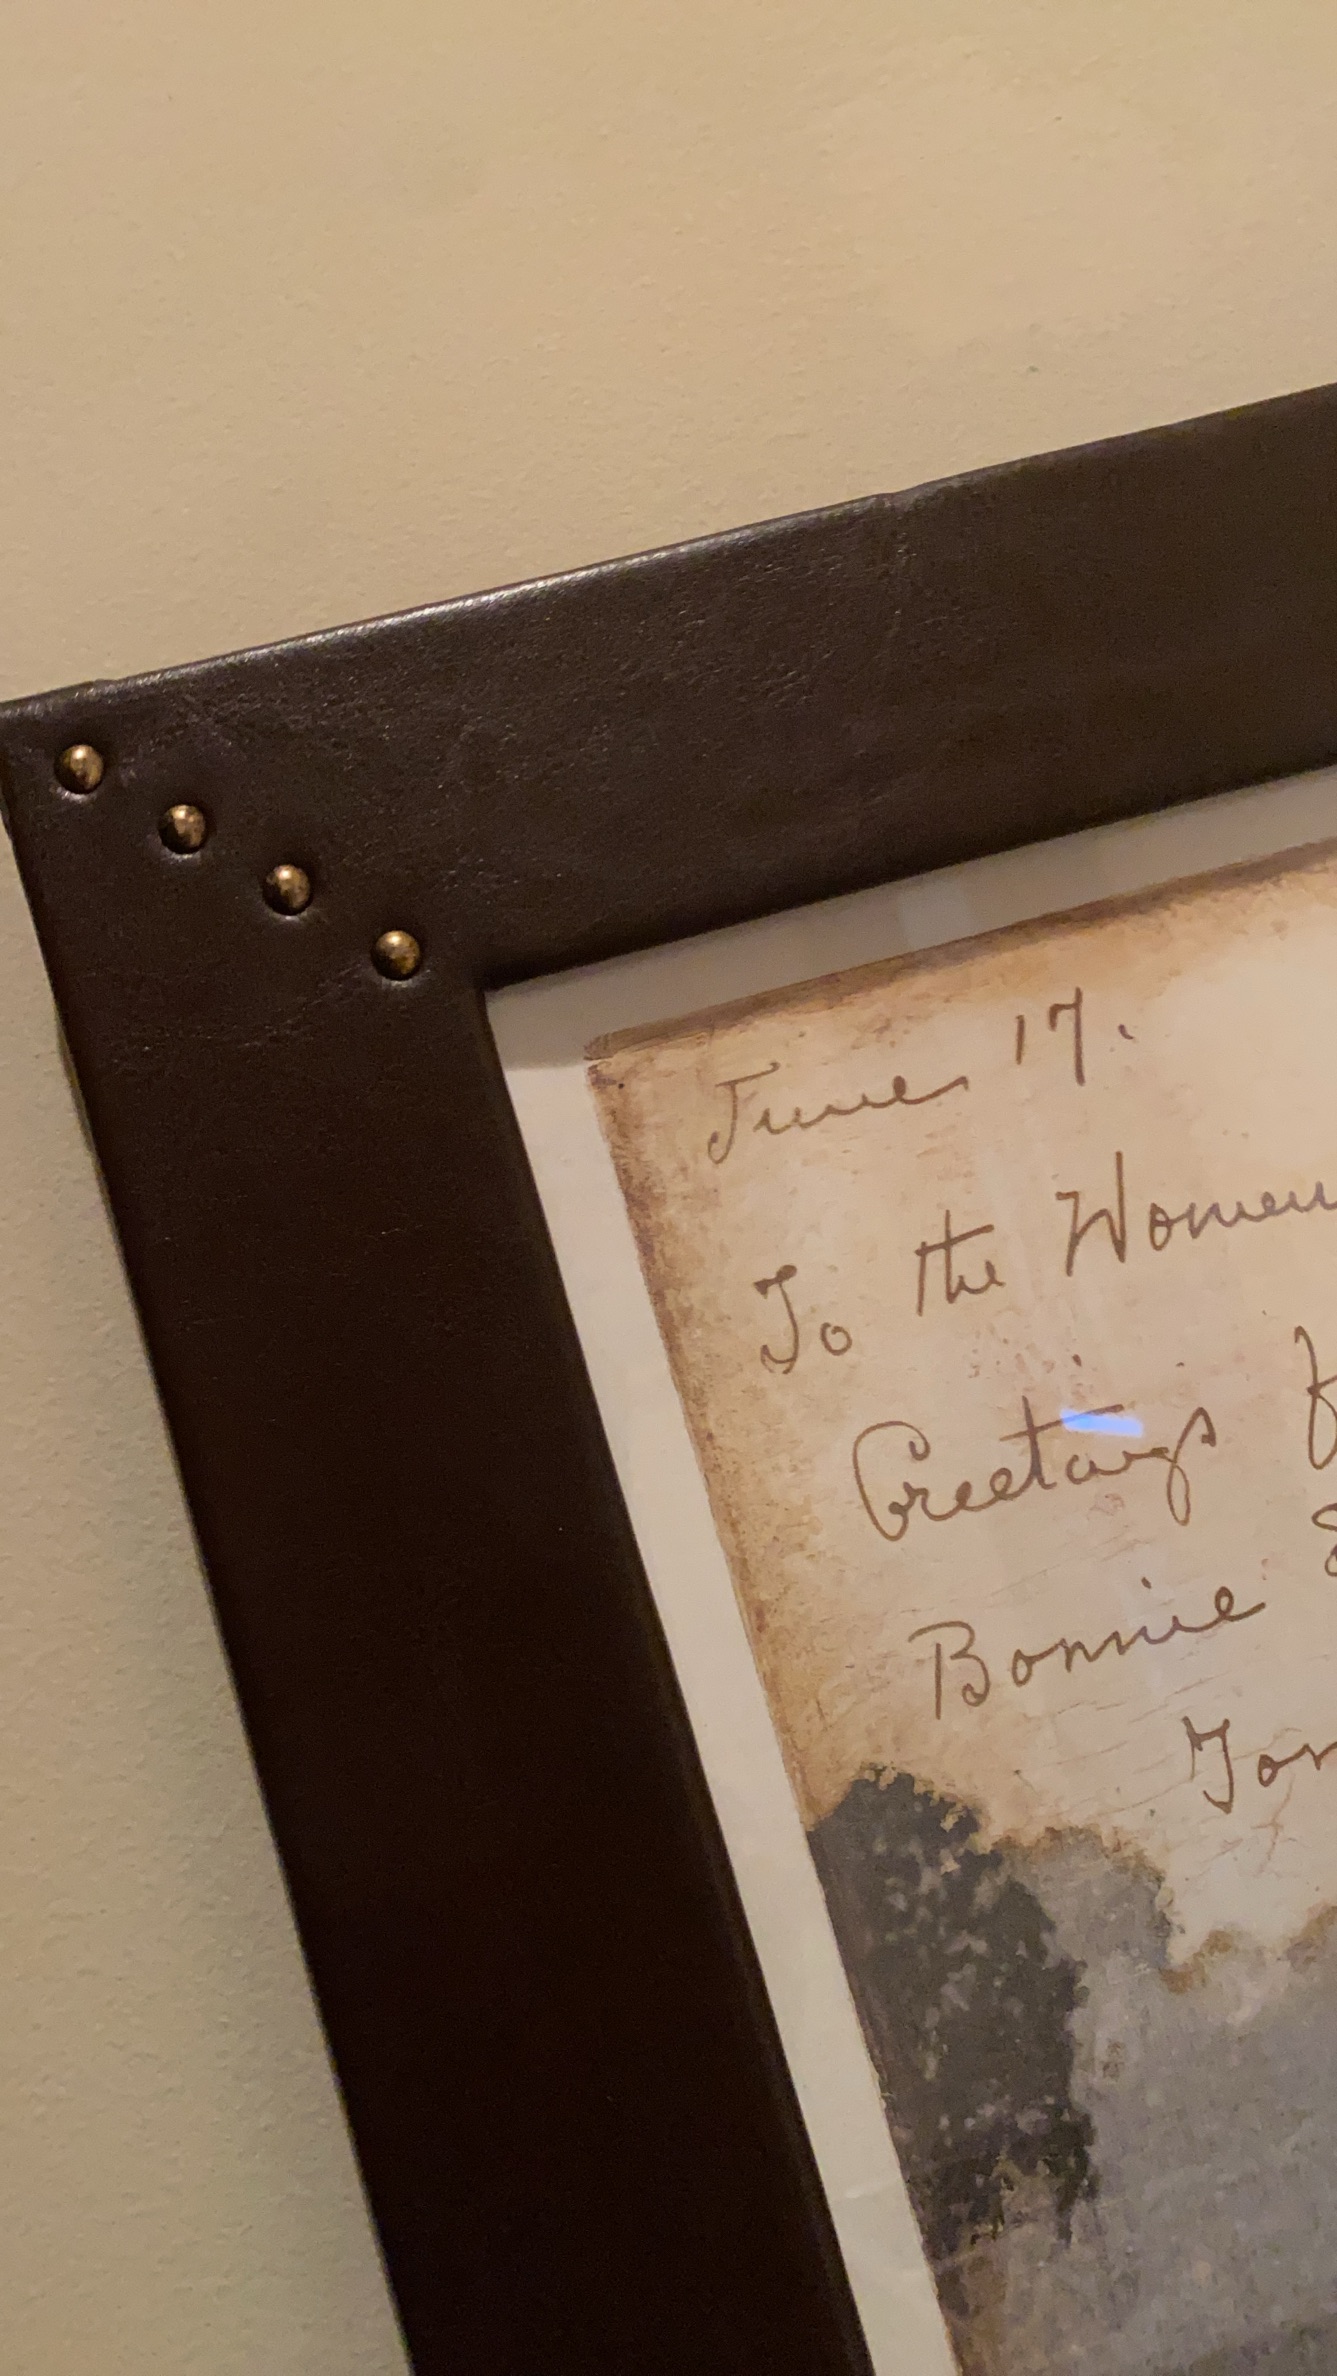 June 17.
To the Women
Greetings
Bonnie